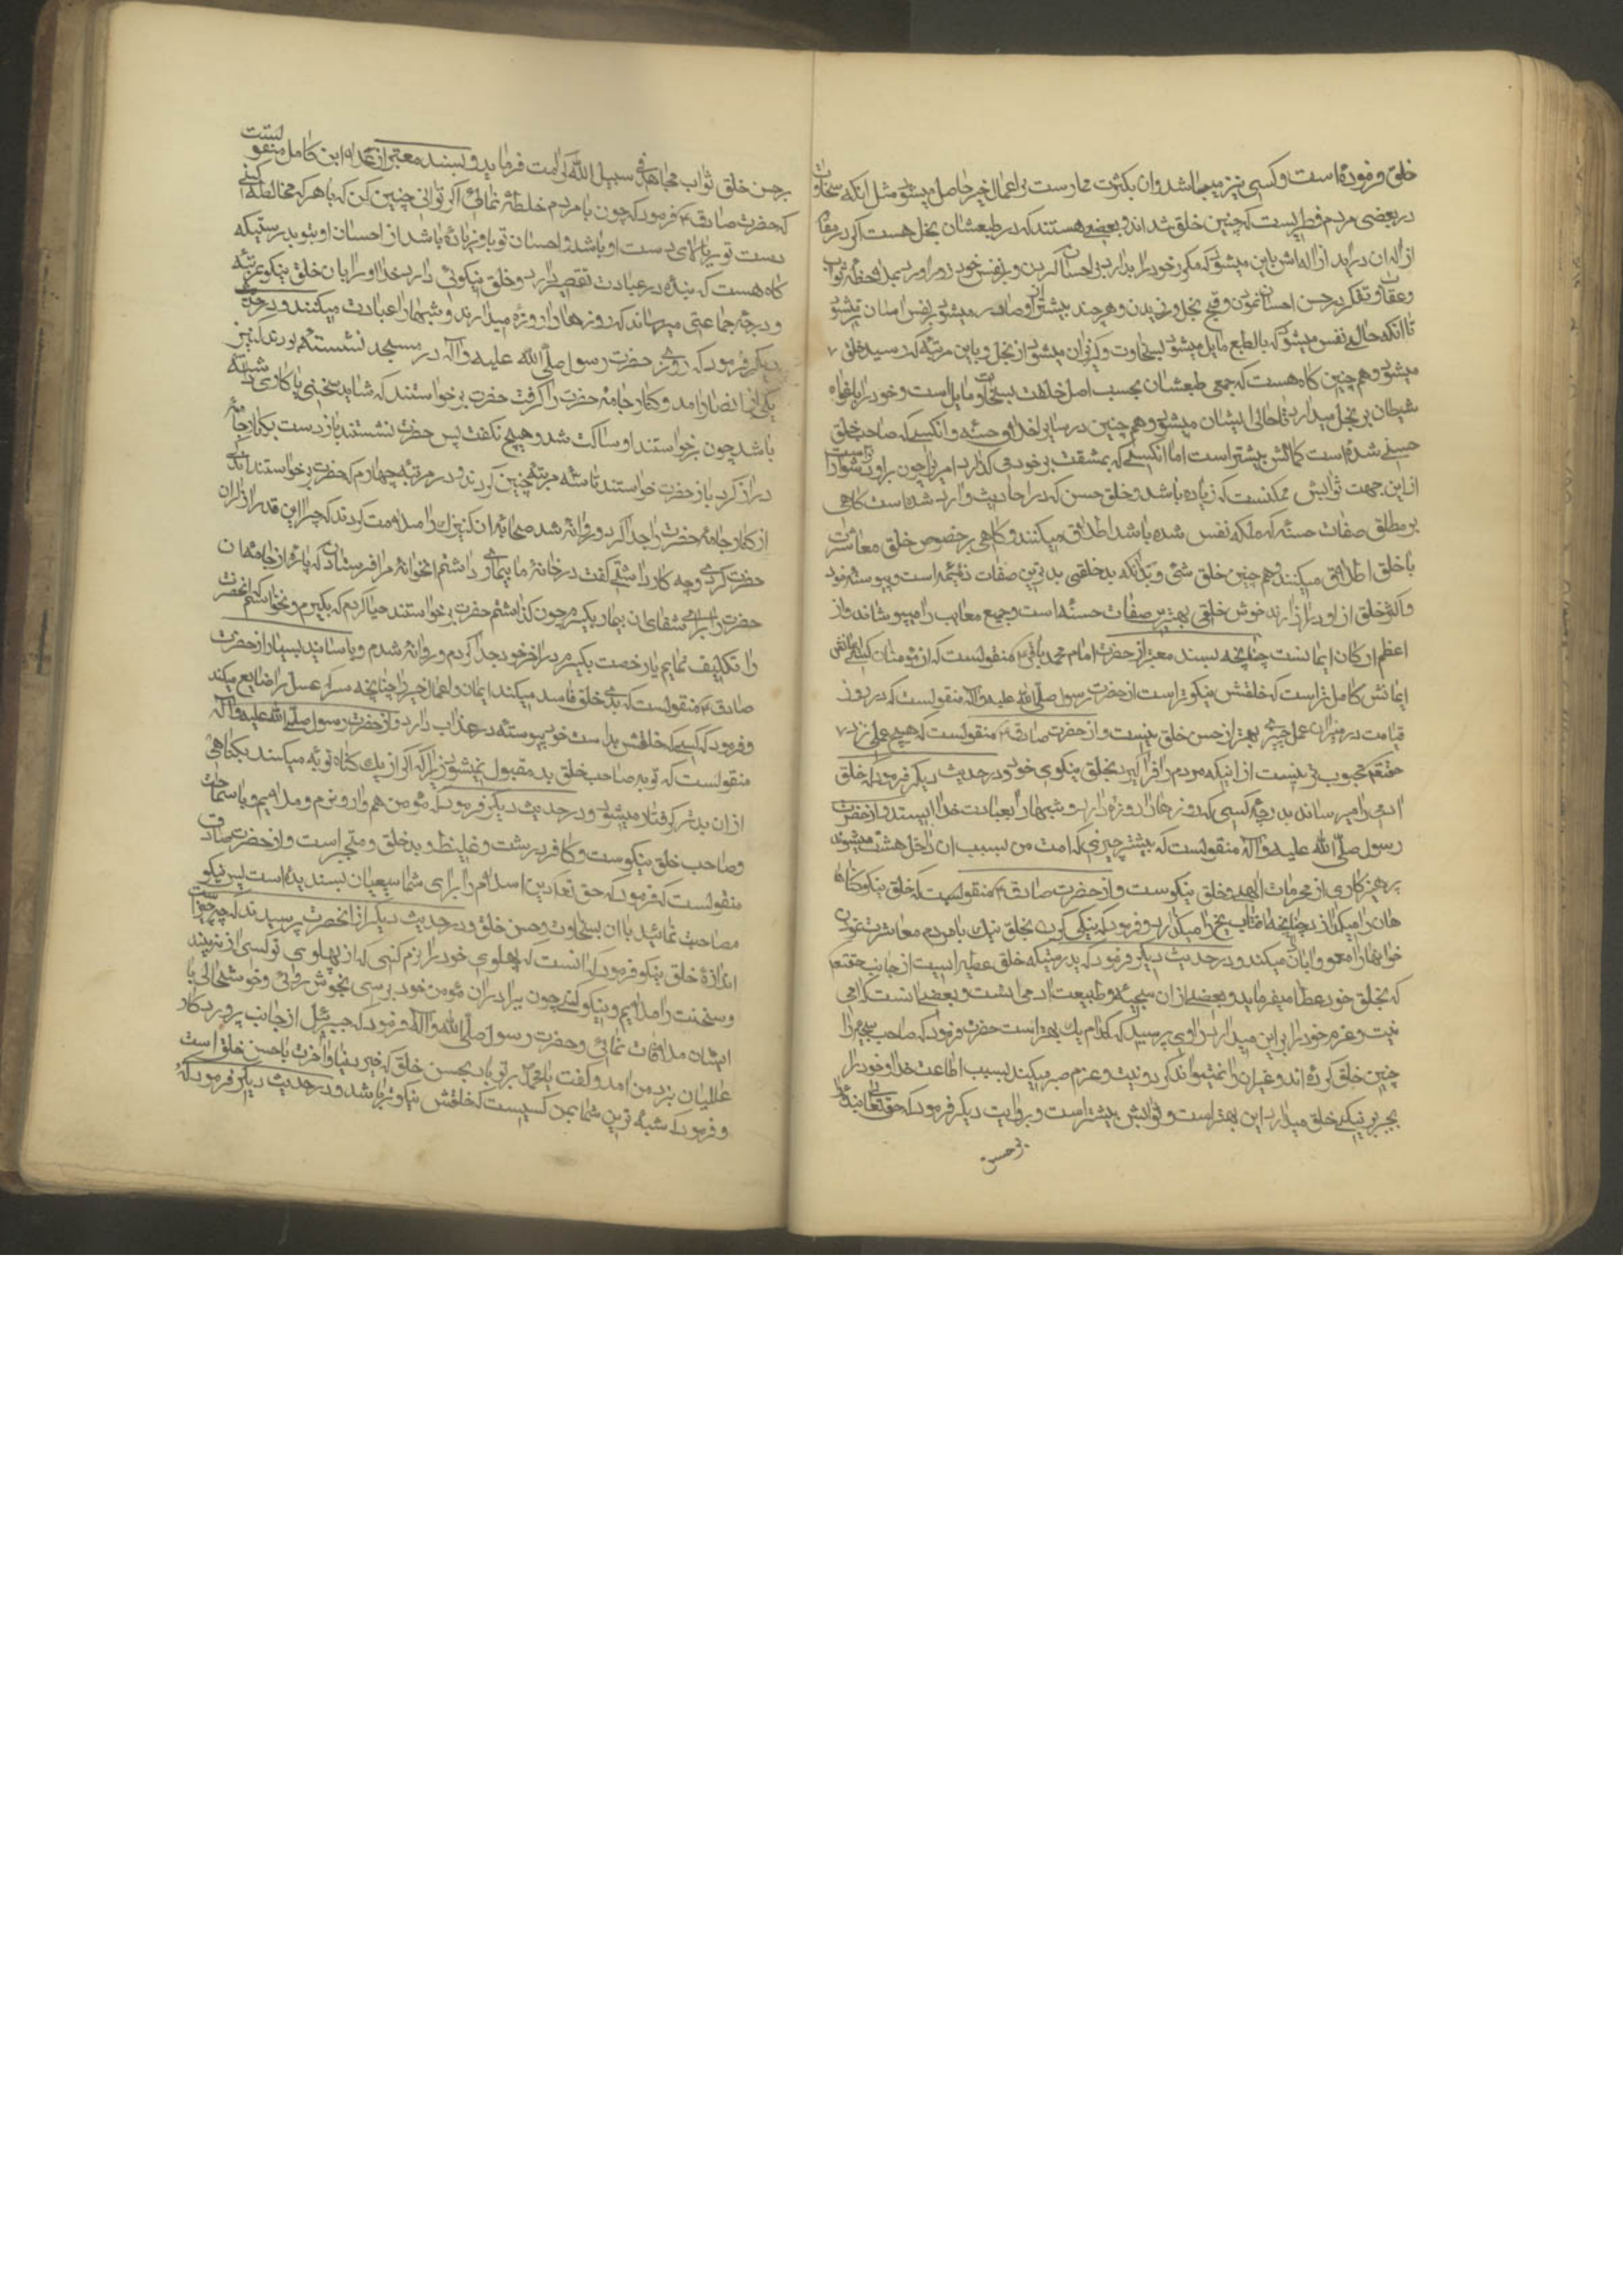 خلق فرموده است و کسبی نیز میباشد و ان بکثرت ممارست بر اعمال خیر حاصل میشود مثل آنکه سخاوت
در بعضی مردم فطریست که چنین خلق شده‌اند و بعضی هستند که در طبعشان بخل هست اگر در مقام
ازاله ان درآید ازاله‌اش باین میشود که مکرر خود را بدارد بر احسان کردن و بر نفس خود زور اورد بملاحظه ثواب
و عقاب و تفکر در حسن احسان نمودن و قبح بخل ورزیدن و هر چند بیشتر از او صادر میشود بر نفس اسان‌تر میشود
تا آنکه حالی نفس میشود که بالطبع مایل میشود بسخاوت و گریزان میشود از بخل و باین مرتبه که رسید خلق
میشود و هم چنین گاه هست که جمعی طبعشان بحسب اصل خلقت بسخاوت مایل است و خود را باغواه
شیطان بر بخل میدارد تا حالی ایشان میشود و هم چنین در سایر اخلاق حسنه و انکسی که صاحب خلق
حسنی شده است کمالش بیشتر است اما انکسی که بمشقت بر خود می‌گذارد امری را چون بر او دشوارتر است
از این جهت ثوابش ممکنست که زیاده باشد و خلق حسن که در احادیث وارد شده است گاهی
بر مطلق صفات حسنه که ملکه نفس شده باشد اطلاق میکنند و گاهی بر خصوص خلق معاشرت
با خلق اطلاق میکنند و هم چنین خلق سیّئ و بدانکه بدخلقی بدترین صفات ذمیمه است و پیوسته خود
و آلخلق از او در ازارند خوش خلقی بهترین صفات حسنه است و جمیع معایب را میپوشاند و از
اعظم ارکان ایمانست چنانچه بسند معتبر از حضرت امام محمد باقر ع منقولست که از مؤمنان کسی
ایمانش کامل‌تر است که خلقش نیکوتر است از حضرت رسول صلّی الله علیه و آله منقولست که در روز
قیامت در میزان عمل چیزی بهتر از حسن خلق نیست و از حضرت صادق ع منقولست که هیچ عملی نزد
حقتعم محبوب‌تر نیست از اینکه مردم را فراگیرد بخلق نیکوی خود و در حدیث دیگر فرمود که خلق
ادمی را میرساند بدرجه کسی که روزها را روزه دارد و شبها را بعبادت خدا ایستد و از حضرت
رسول صلّی الله علیه و آله منقولست که بیشتر چیزی که امت من بسبب ان داخل بهشت میشوند
پرهیزکاری از محرمات الهی و خلق نیکوست و از حضرت صادق ع منقولست که خلق نیکو گناه
هان را میگذارد چنانچه افتاب یخ را میگذارد و فرمود که نیکی کردن بخلق نیک با مردم معاشرت نمودن
خوابها را معمور و ابادان میکند و در حدیث دیگر فرمود که بدرستیکه خلق عطیه ایست از جانب حقتعم
که بخلق خود عطا میفرماید و بعضی از ان سجیه و طبیعت ادمی است و بعضی انست که ادمی
نیت و عزم خود را بر این میدارد راوی پرسید که کدام یک بهتر است حضرت فرمود که صاحب سجیه را
چنین خلق کرده‌اند و غیر ان را نمیتواند کرد و نیت و عزم صبر میکند بسبب اطاعت خدا و خود را
بجبر بر نیکی خلق میدارد این بهتر است و ثوابش بیشتر است و بروایت دیگر فرمود که حقتعالی بنده را
بر حسن
بر حسن خلق ثواب مجاهد فی سبیل الله کرامت فرماید و بسند معتبر از علاء ابن کامل منقولست
که حضرت صادق ع فرمود که چون با مردم خلطه نمائی اگر توانی چنین کن که با هر که مخالطه کنی
دست تو بر بالای دست او باشد و احسان تو باو زیاده باشد از احسان او بتو بدرستیکه
گاه هست که بنده در عبادت تقصیر دارد و خلق نیکوئی دارد خدا او را بان خلق نیکو بمرتبه
و درجه جماعتی میرساند که روزها را روزه میدارند و شبها را عبادت میکنند و در حدیث
دیگر فرمود که روزی حضرت رسول صلّی الله علیه و آله در مسجد نشسته بودند کنیز
یکی از انصار امد و کنار جامه حضرت را گرفت حضرت برخواستند که شاید سخنی یا کاری داشته
باشد چون برخواستند او ساکت شد و هیچ نگفت پس حضرت نشستند باز دست بکنار جامه
دراز کرد باز حضرت خواستند تا سه مرتبه چنین کردند و در مرتبه چهارم که حضرت برخواستند اندکی
از کنار جامه حضرت را جدا کرد و روانه شد صحابه ان کنیزک را ملامت کردند که چرا این قدر ازار ان
حضرت کردی و چه کار داشتی گفت در خانه ما بیماری داشتم اهل خانه مرا فرستادند که پاره از جامه ان
حضرت را برای شفای ان بیمار بگیرم چون گذاشتم حضرت برخواستند حیا کردم که بگیرم و نخواستم که انحضرت
را تکلیف نمایم یا رخصت بگیرم در اخر خود جدا کردم و روانه شدم و باسانید بسیار از حضرت
صادق ع منقولست که بدی خلق فاسد میکند ایمان و اعمال خیر را چنانچه سرکه عسل را ضایع میکند
و فرمود که کسی که خلقش بد است خود پیوسته در عذاب دارد و از حضرت رسول صلّی الله علیه و آله
منقولست که توبه صاحب خلق بد مقبول نمیشود زیرا که اگر از یک گناه توبه میکند بگناهی
از ان بدتر گرفتار میشود و در حدیث دیگر فرمود که مؤمن هموار و نرم و ملایم و با سماحت
و صاحب خلق نیکوست و کافر درشت و غلیظ و بدخلق و متجبر است و از حضرت صادق
منقولست که فرمود که حق تعم دین اسلام را برای شما شیعیان پسندیده است پس نیکو
مصاحبت نمائید با ان بسخاوت و حسن خلق و در حدیث دیگر از انحضرت پرسیدند که چه چیز است
اندازه خلق نیکو فرمود که انست که پهلوی خود را نرم کنی که از پهلوی تو کسی ازار نبیند
و سخنت را ملایم و نیکو کنی چون برادران مؤمن خود برسی بخوش‌روئی و خوشحالی با
ایشان ملاقات نمائی و حضرت رسول صلّی الله و آله فرمود که جبرئیل از جانب پروردگار
عالمیان نزد من امد و گفت یا محمد بر تو باد بحسن خلق که خیر دنیا و آخرت با حسن خلق است
و فرمود که شبیه‌ترین شما بمن کسیست که خلقش نیکوتر باشد و در حدیث دیگر فرمود که